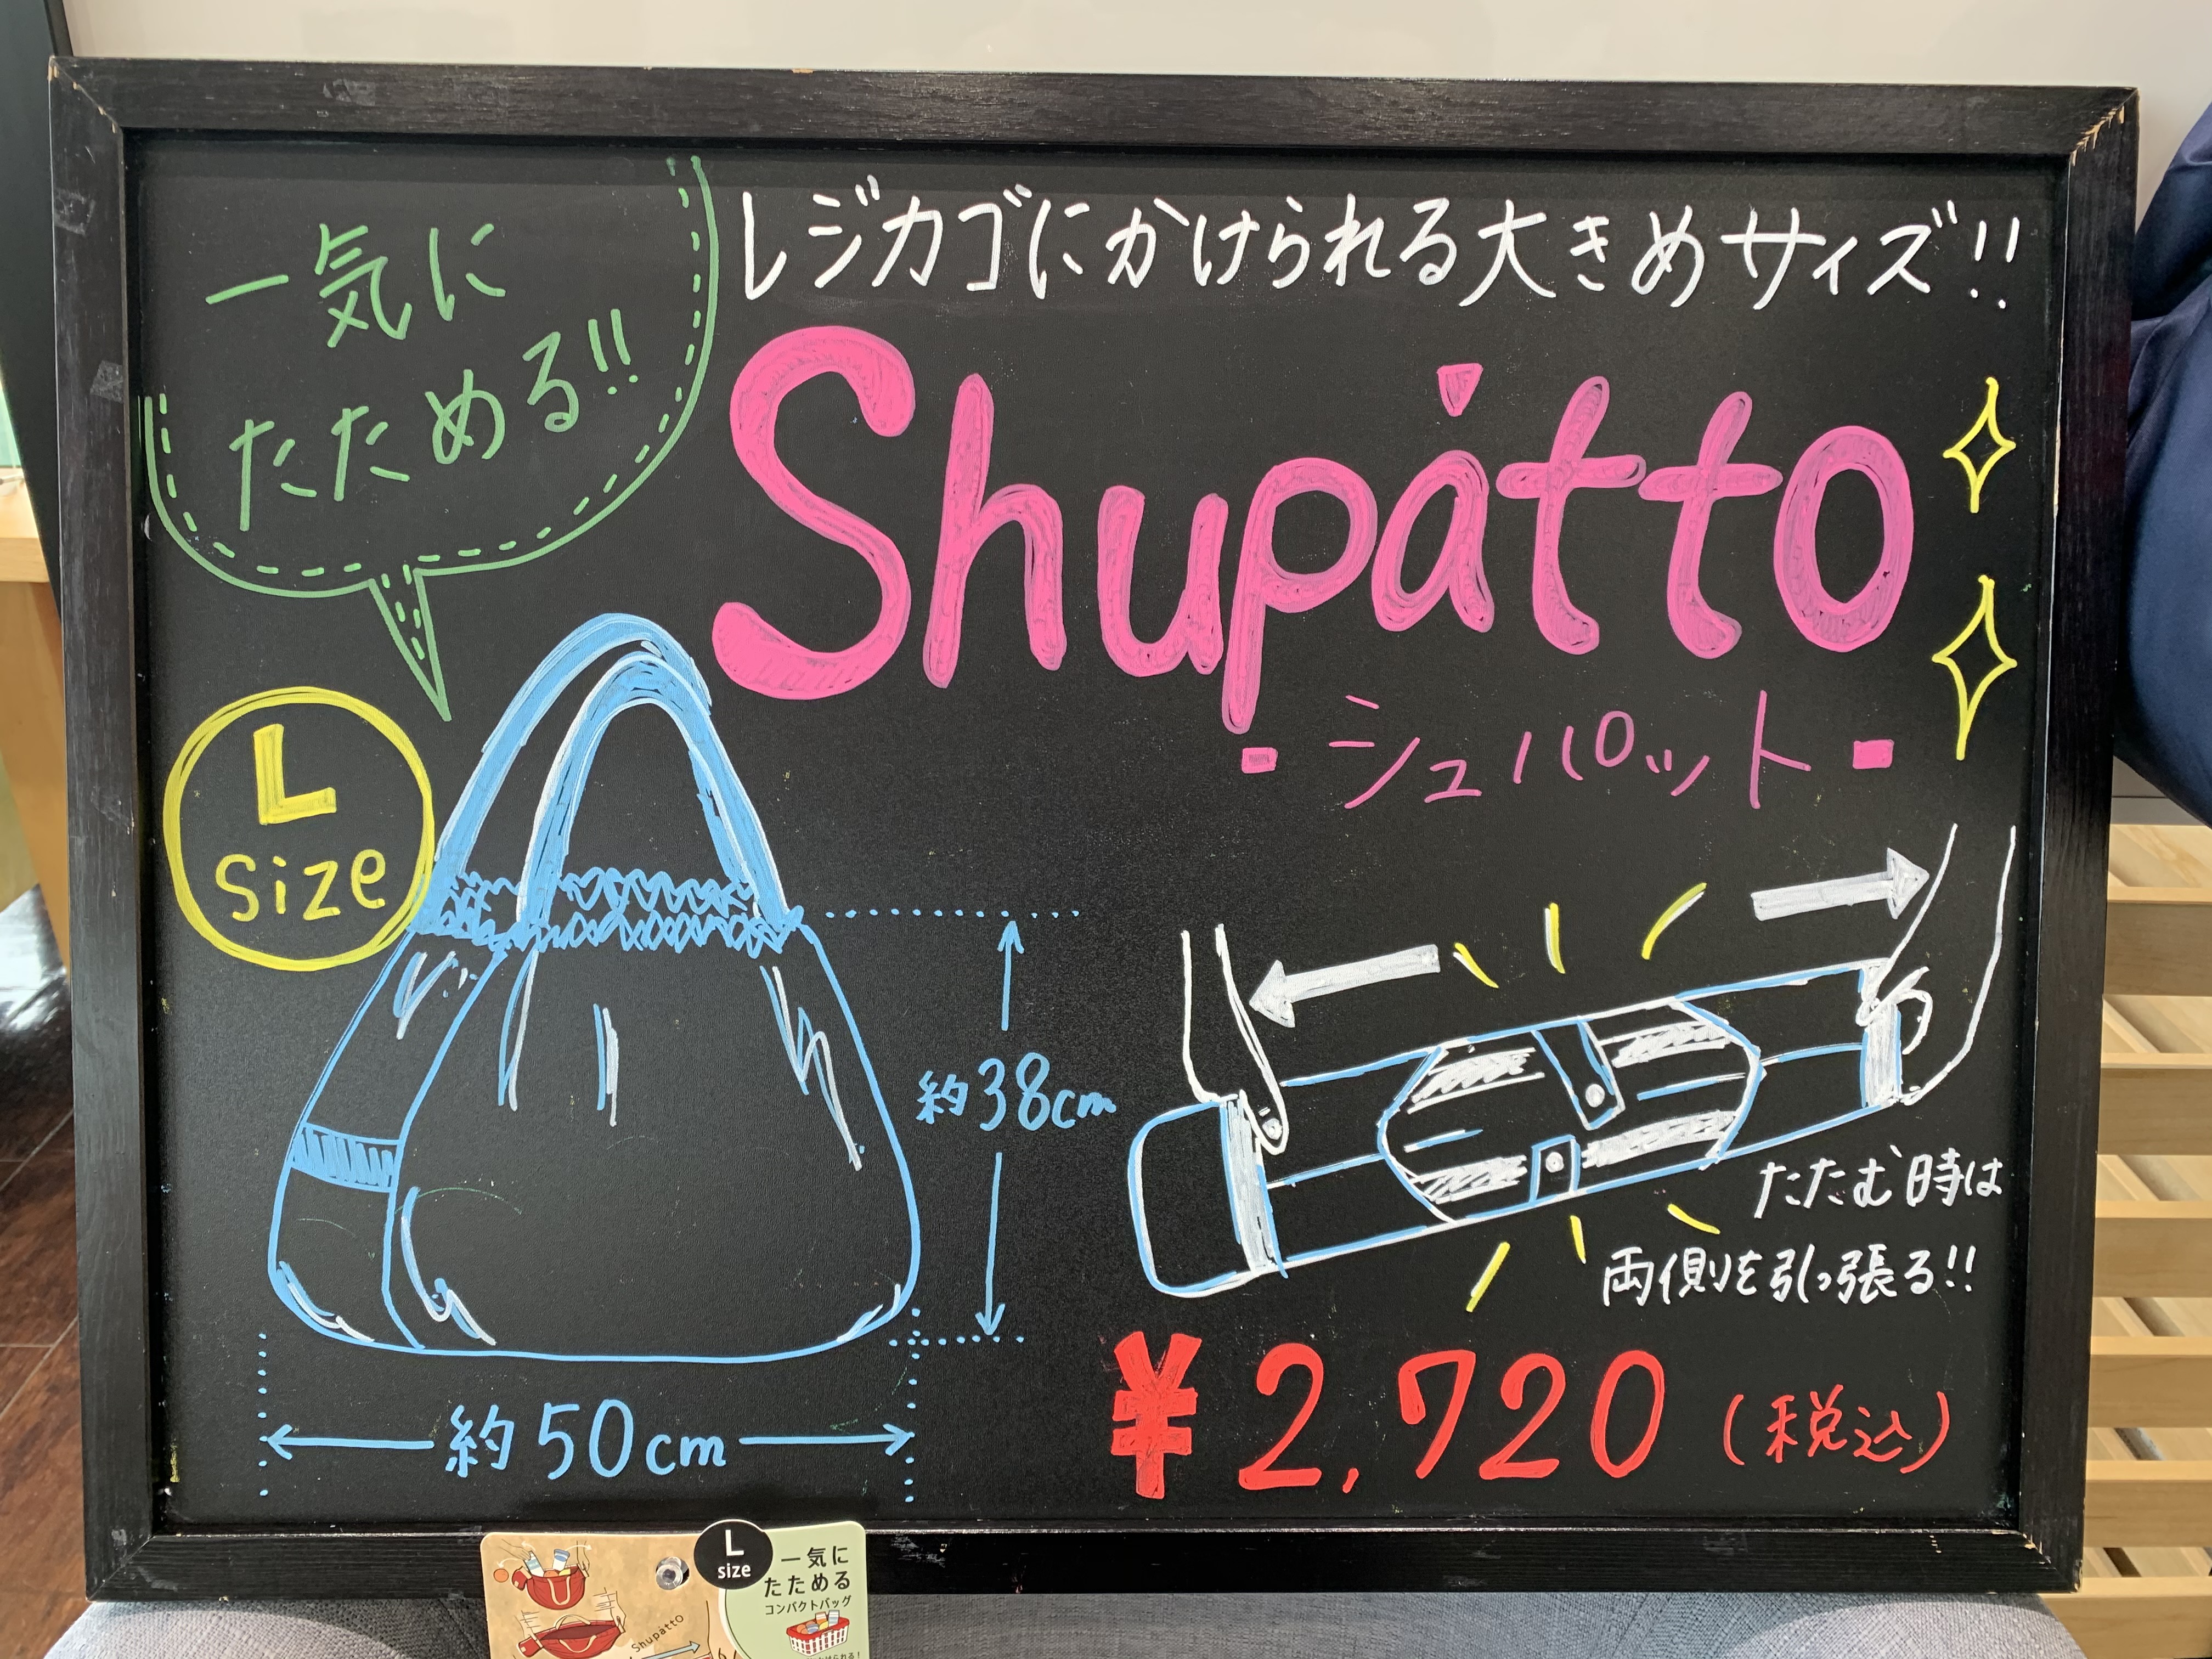 一気に
たためる!!
レジカゴにかけられる大きめサイズ!!
Shupatto
シュパット
L
size
約38cm
約50cm
たたむ時は
両側を引っ張る!!
¥2,720(税込)
L
size
一気に
たためる
コンパクトバッグ
Shupatto